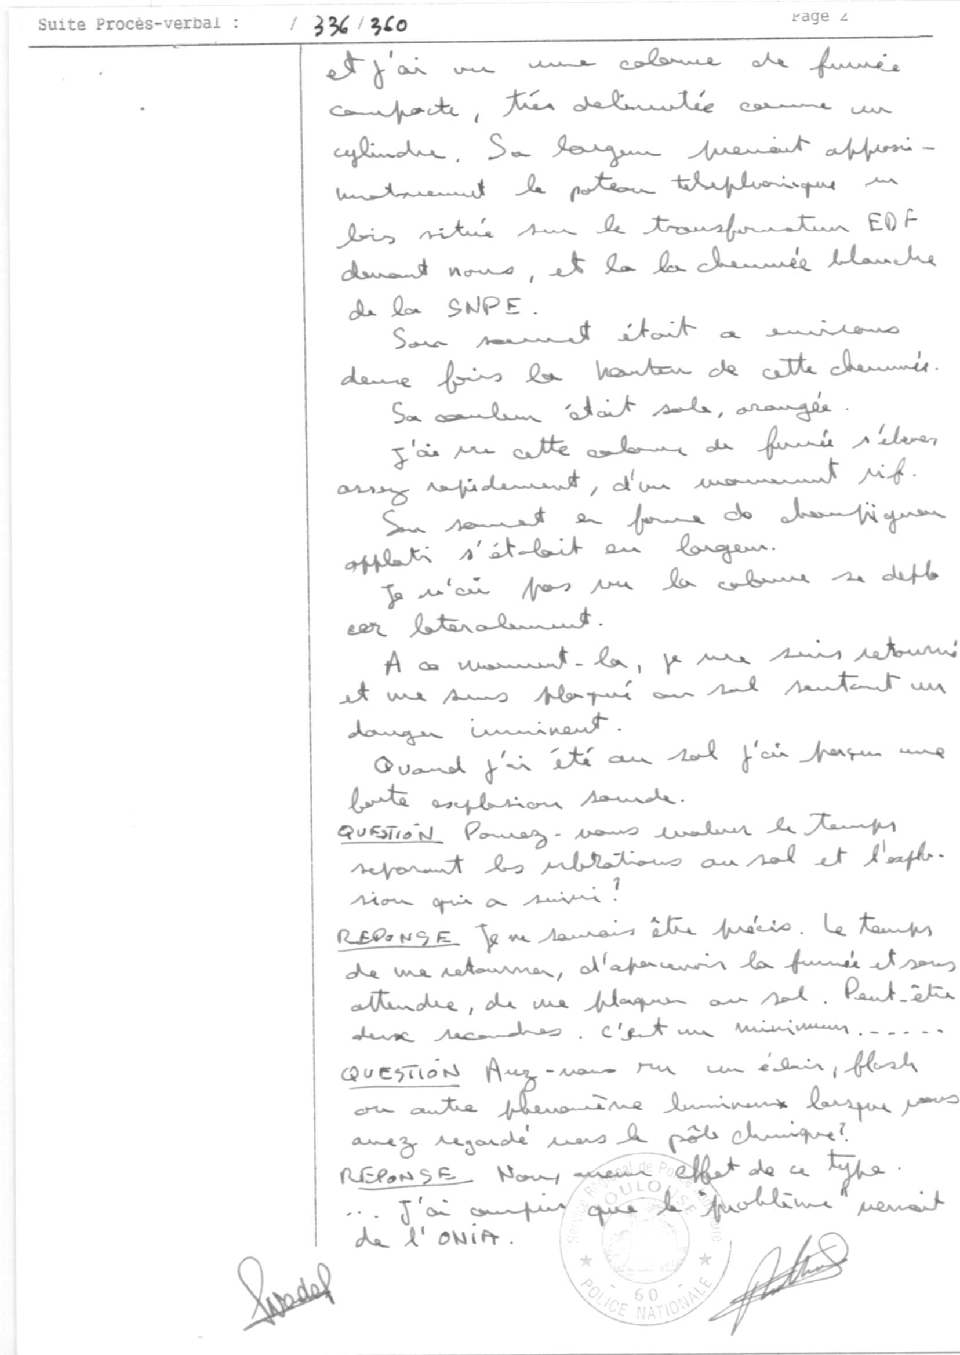 Suite Procès-verbal : / 336/360
Page 2
et j'ai vu une colonne de fumée
compacte, très delimitée comme un
cylindre. Sa largeur prenait approxi-
mativement le poteau telephonique en
bois situé sur le transformateur EDF
devant nous, et la la cheminée blanche
de la SNPE.
Son sommet était a environs
deux fois la hauteur de cette cheminée.
Sa couleur était sale, orangée.
J'ai vu cette colonne de fumée s'élever
assez rapidement, d'un mouvement vif.
Son sommet en forme de champignon
applati s'étalait en largeur.
Je n'ai pas vu la colonne se depla
cer lateralement.
A ce moment-la, je me suis retourné
et me suis plaqué au sol sentant un
danger imminent.
Quand j'ai été au sol j'ai perçu une
forte explosion sourde.
QUESTION Pouvez-vous evaluer le temps
separant les vibrations au sol et l'explo-
sion qui a suivi?
REPONSE Je ne saurais être précis. Le temps
de me retourner, d'apercevoir la fumée et sans
attendre, de me plaquer au sol. Peut-être
deux secondes. c'est un minimum......
QUESTION Avez-vous vu un éclair, flash
ou autre phenomène lumineux lorsque vous
avez regardé vers le pôle chimique?
REPONSE Non, effet de ce type.
... J'ai compris que le "problème" venait
de l'ONIA.
Service Régional de Police
TOULOUSE
- 60 -
POLICE NATIONALE